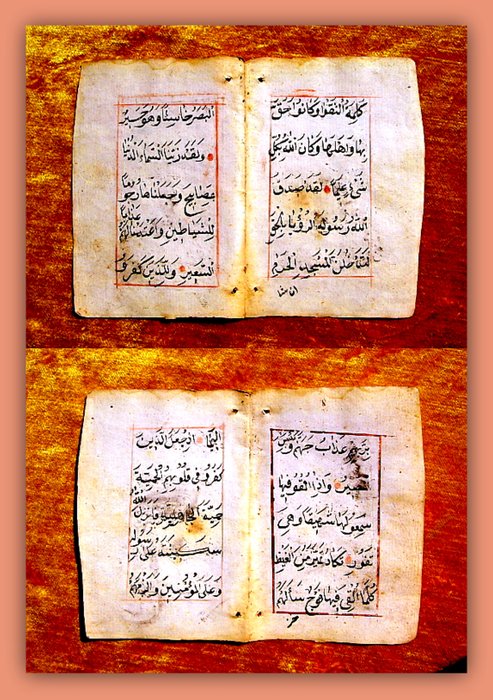 كلمة التقوا وكانوا حق
بها واهلها وكان الله بكل
شيء عليما لقد صدق
الله رسوله الرؤيا بالحق
لتدخلن المسجد الحرام
ان شا
البصر خاسئا وهو حسير
ولقد زينا السماء الدنيا
بمصابيح وجعلناها رجوما
للشياطين واعتدنا لهم عذاب
السعير وللذين كفروا
بربهم عذاب جهنم وبئس
المصير واذا القوا فيها
سمعوا لها شهيقا وهي
تفور تكاد تميز من الغيظ
كلما القي فيها فوج سالهم
خز
اليما اذ جعل الذين
كفروا في قلوبهم الحمية
حمية الجاهلية فانزل الله
سكينته على رسوله
وعلى المؤمنين والزمهم